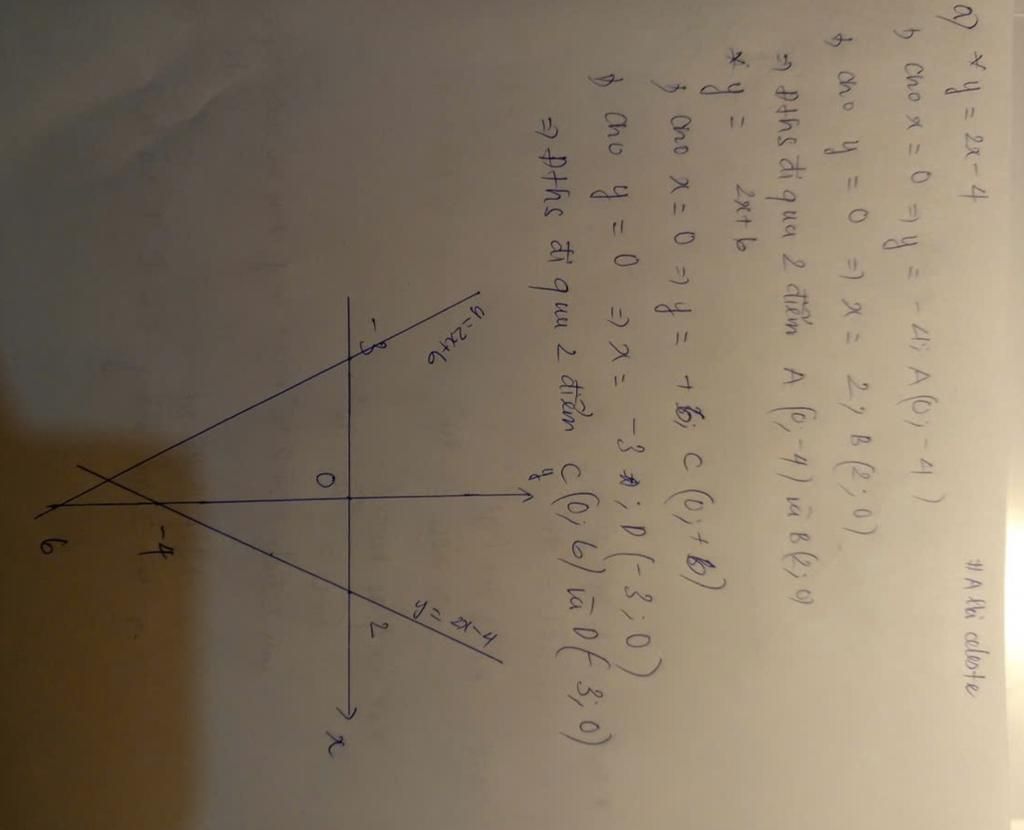 #Athi celeste
a) * y = 2x - 4
cho x = 0 => y = - 4; A(0; -4)
cho y = 0 => x = 2; B(2; 0)
=> Đths đi qua 2 điểm A (0; -4) và B(2; 0)
* y = 2x + 6
cho x = 0 => y = + 6; C (0; +6)
cho y = 0 => x = -3; D(-3; 0)
=> Đths đi qua 2 điểm C (0; 6) và D(-3; 0)
y
y = 2x+6
y = 2x-4
-3
0
2
x
-4
6